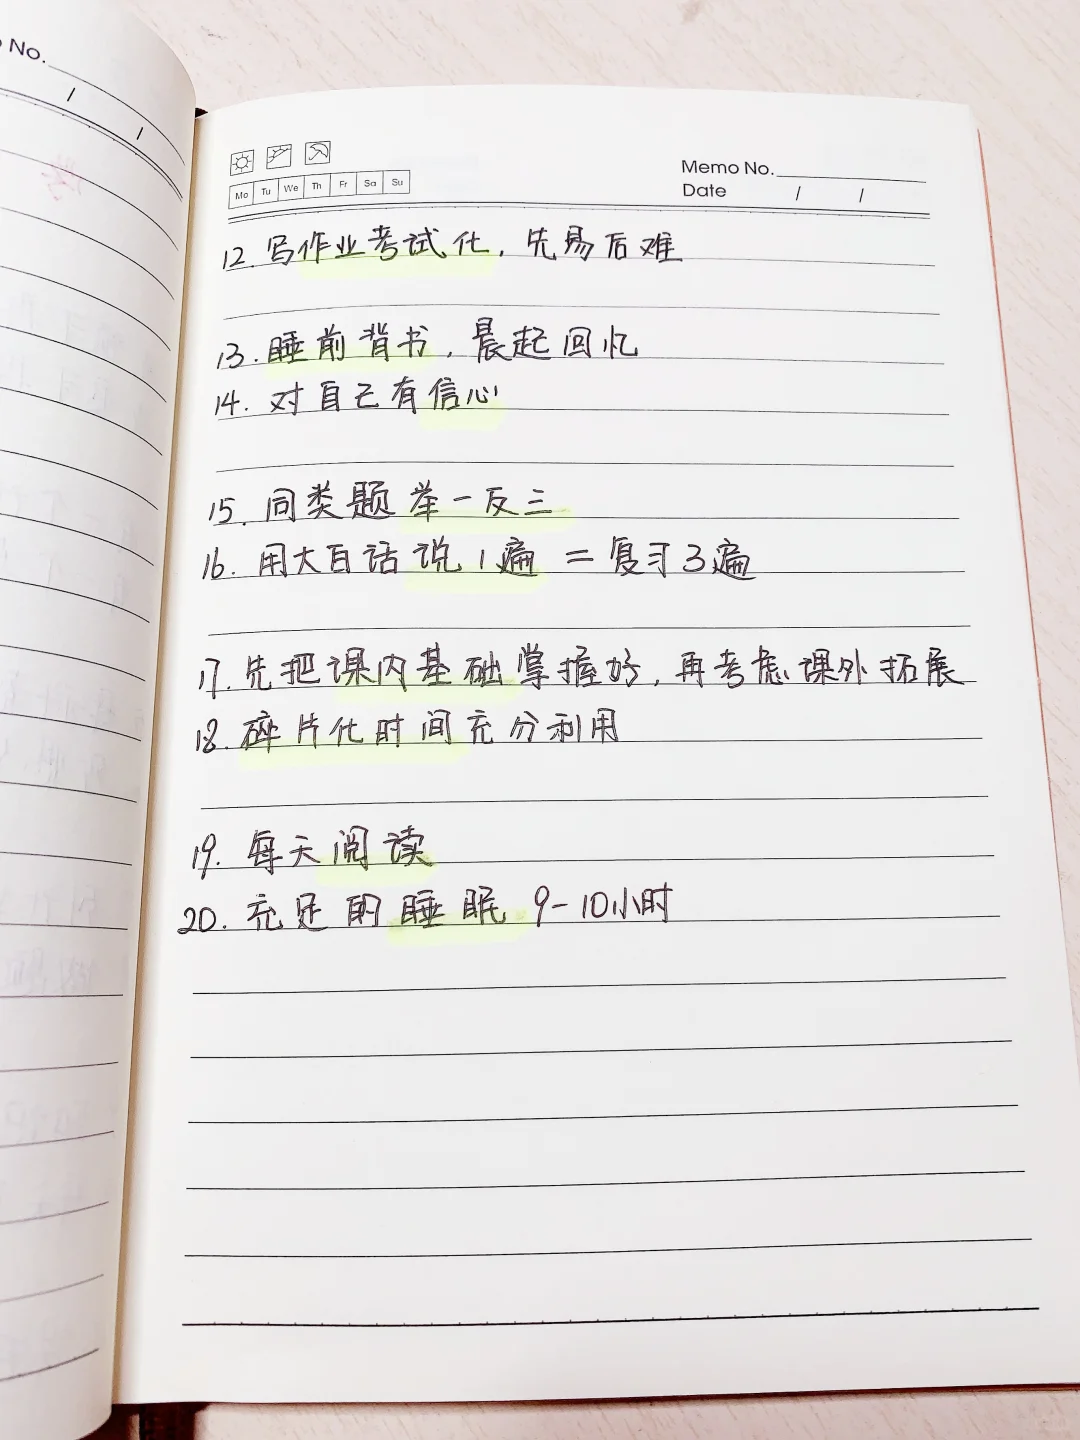 No.
/ /
Mo Tu We Th Fr Sa Su
Memo No.
Date / /
12. 写作业考试化, 先易后难
13. 睡前背书, 晨起回忆
14. 对自己有信心
15. 同类题举一反三
16. 用大白话说1遍 = 复习3遍
17. 先把课内基础掌握好, 再考虑课外拓展
18. 碎片化时间充分利用
19. 每天阅读
20. 充足的睡眠 9-10小时